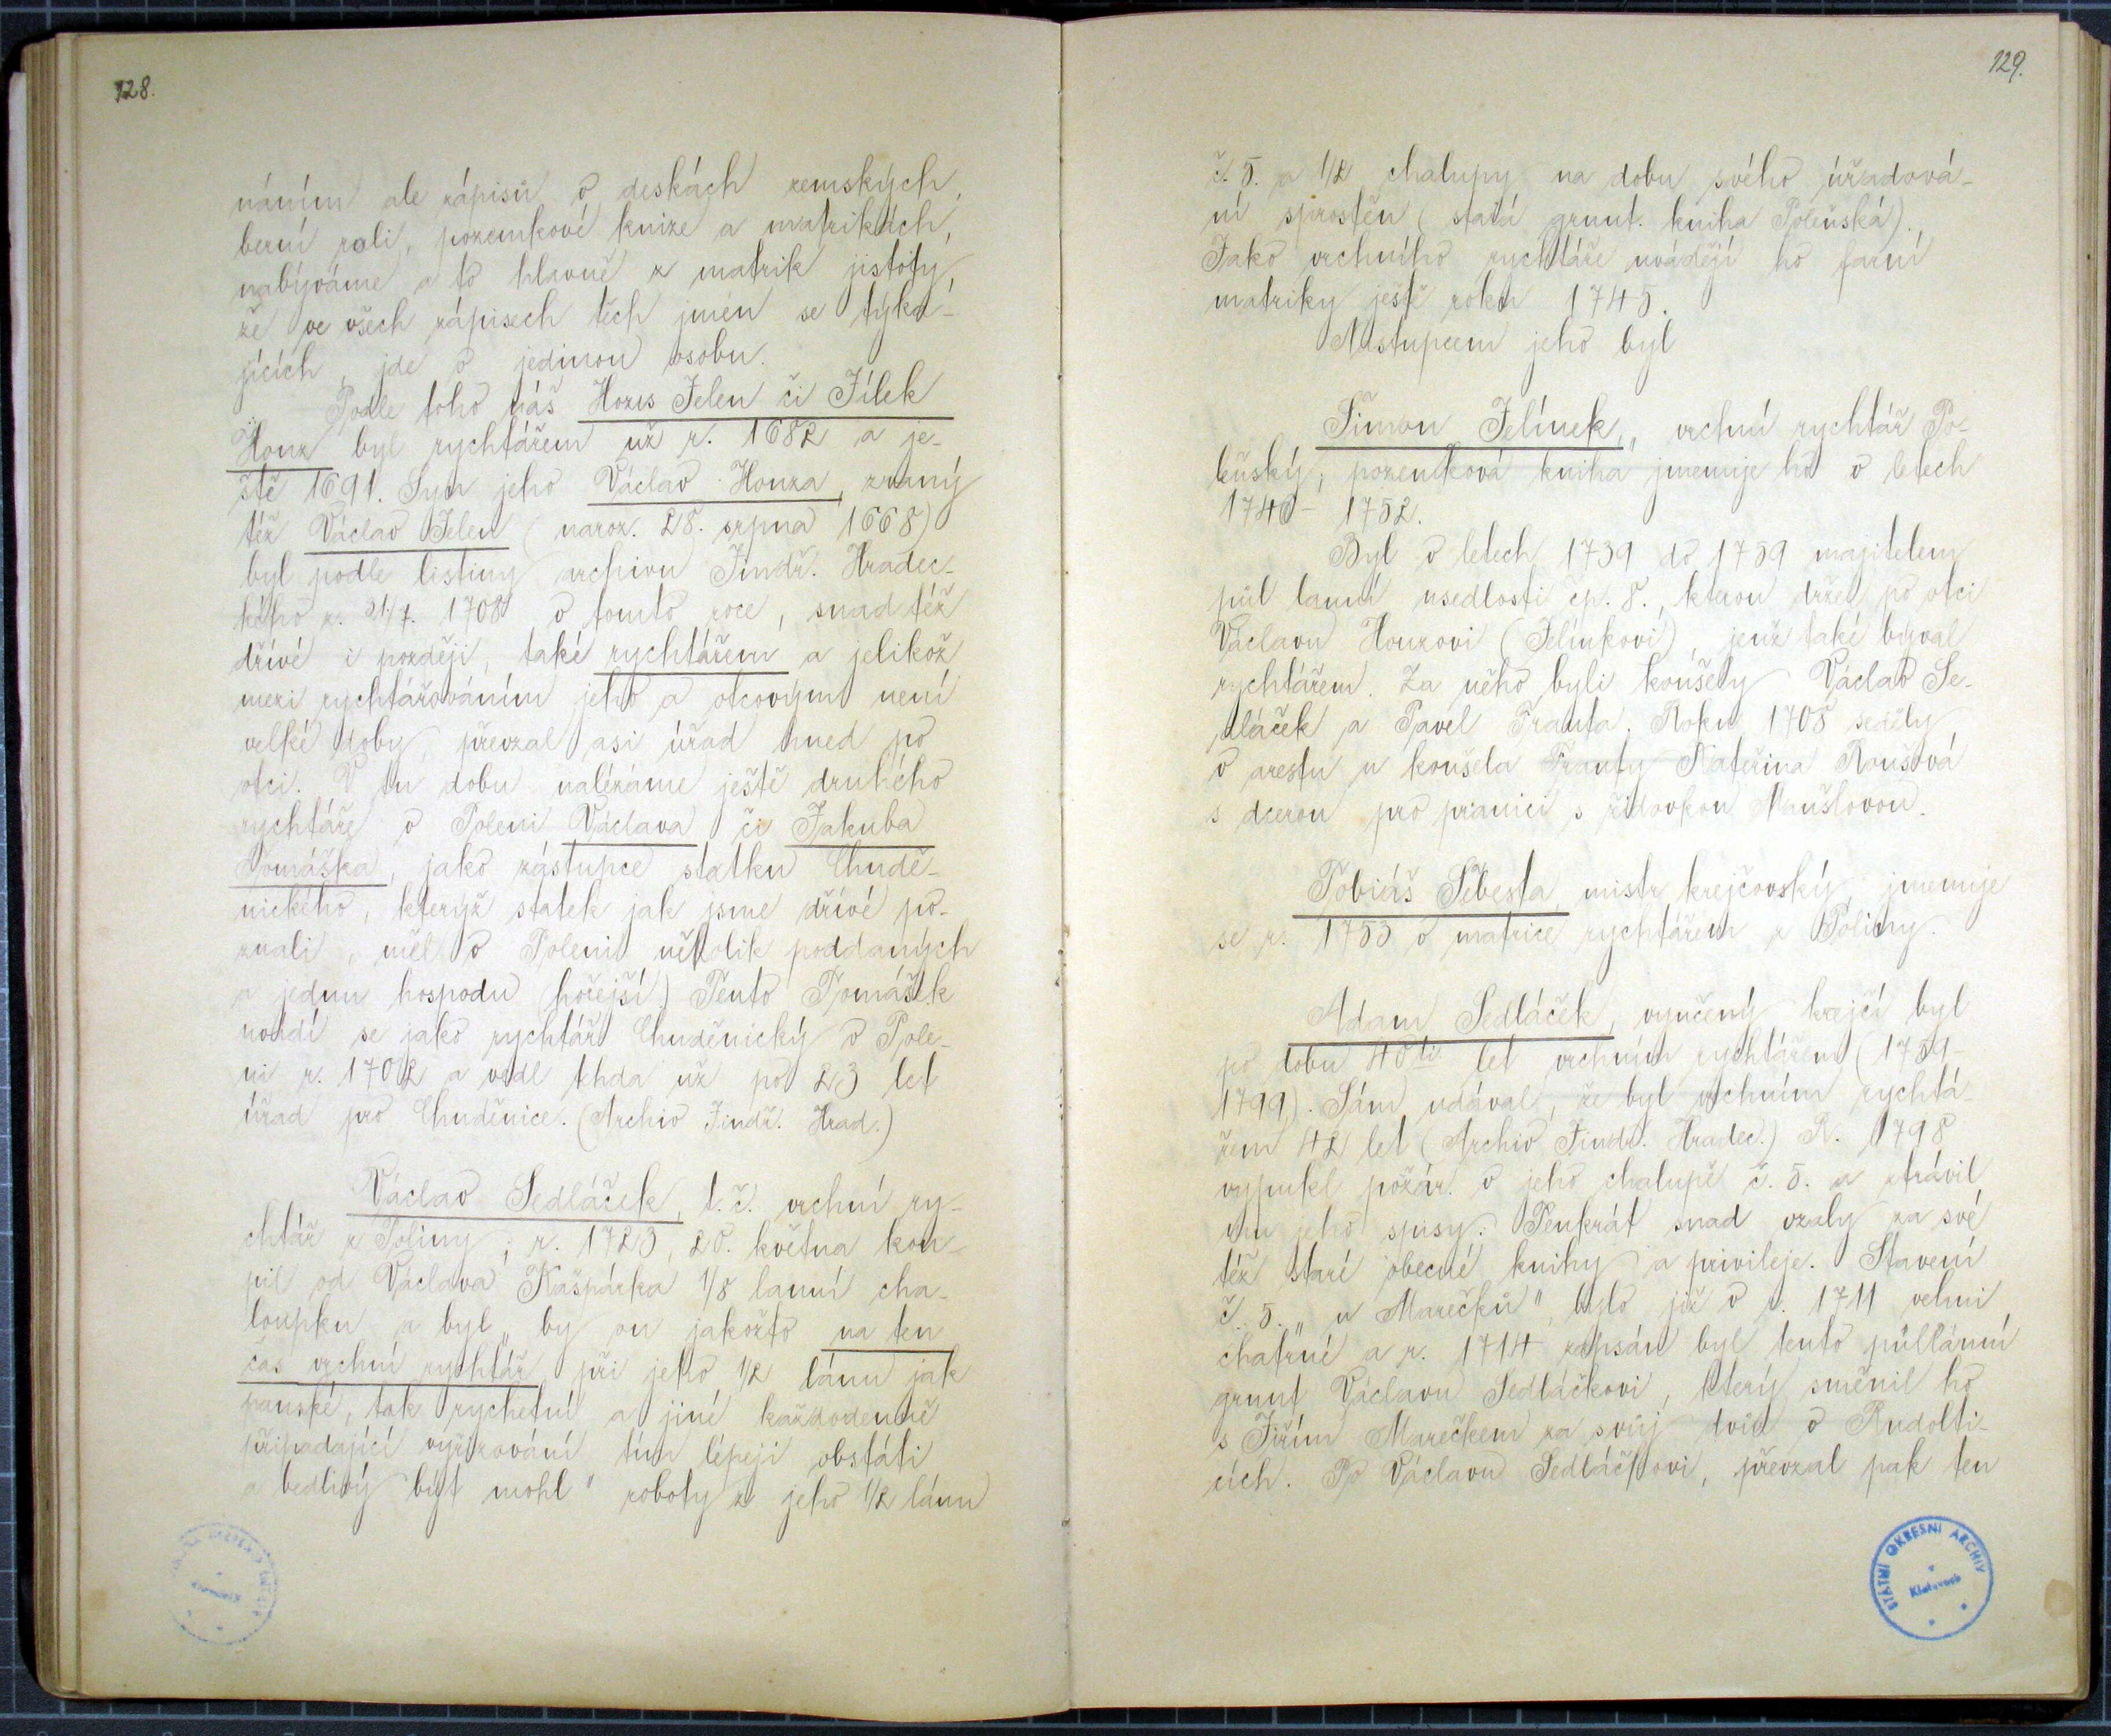 128.
náním ale zápisů v deskách zemských,
berní roli, pozemkové knize a matrikách,
nabýváme a to hlavně z matrik jistoty,
že ve všech zápisech těch jmen se týka-
jících, jde o jedinou osobu.
Podle toho náš Hons Jelen či Jílek
Honz byl rychtářem už r. 1682 a je-
ště 1691. Syn jeho Václav Honza, zvaný
též Václav Jelen (naroz. 28. srpna 1668)
byl podle listiny archivu Jindř. Hradec-
kého z. 31/7. 1708 v tomto roce, snad též
dříve i později, také rychtářem a jelikož
mezi rychtářováním jeho a otcovým není
velké doby, převzal asi úřad hned po
otci. V tu dobu nalézáme ještě druhého
rychtáře v Poleni Václava či Jakuba
Tomáška, jako zástupce statku Chudě-
nického, kterýž statek jak jsme dříve po-
znali, měl v Poleni několik poddaných
a jednu hospodu (hořejší) Tento Tomášek
uvádí se jako rychtář Chuděnický v Pole-
ni r. 1702 a vedl tehda už po 23 let
úřad pro Chuděnice. (Archiv Jindř. Hrad.)
Václav Sedláček, t. č. vrchní ry-
chtář z Poliny; r. 1723, 20. května kou-
pil od Václava Kašpárka 1/8 lanní cha-
loupku a byl „by on jakožto na ten
čas vrchní rychtář při jeho 1/2 lánu jak
panské, tak rychetní a jiné každodenně
připadající vyřizování tím lépeji obstáti
a bedlivý být mohl" roboty z jeho 1/2 lánu
129.
č. 5. a 1/2 chalupy na dobu svého úřadová-
ní sproštěn (statní grunt. kniha Poleňská).
Jako vrchního rychtáře uvádějí ho farní
matriky ještě roku 1745.
Nástupcem jeho byl
Šimon Jelínek, „vrchní rychtář Po-
leňský"; pozemková kniha jmenuje ho v letech
1746 - 1752.
Byl v letech 1739 do 1759 majitelem
půl lanní usedlosti čp. 8., kterou držel po otci
Václavu Honzovi (Jelínkovi), jenž také býval
rychtářem. Za něho byli konšely Václav Se-
dláček a Pavel Franta. Roku 1708 seděly
v arestu u konšela Franty Kateřina Roušová
s dcerou pro pranici s židovkou Maušlovou.
Tobiáš Šebesta, mistr krejčovský, jmenuje
se r. 1753 v matrice rychtářem z Poliny.
Adam Sedláček, vyučený krejčí byl
po dobu 40ti let vrchním rychtářem (1759-
1799). Sám udával, že byl vrchním rychtá-
řem 42 let (Archiv Jindř. Hradec.) R. 1798
vypukl požár v jeho chalupě č. 5. a ztrávil
mu jeho spisy. Tenkrát snad vzaly za své
též staré obecné knihy a privileje. Stavení
č. 5. „u Marečků", bylo již v r. 1711 velmi
chatrné a r. 1714 zapsán byl tento půllánní
grunt Václavu Sedláčkovi, který směnil ho
s Jiřím Marečkem za svůj dvůr v Rudolti-
cích. Po Václavu Sedláčkovi, převzal pak ten
STÁTNÍ OKRESNÍ ARCHIV
Klatovech